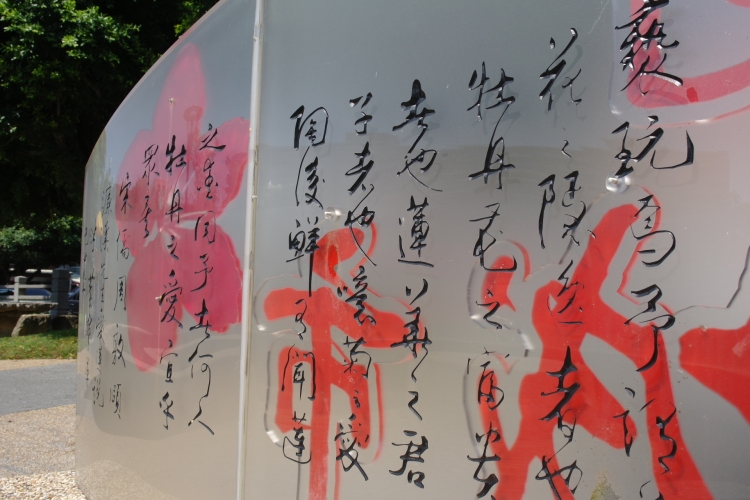 褻玩焉予謂
花之隱逸者也
牡丹花之富貴
者也蓮華之君
子者也噫菊之愛
陶後鮮有聞蓮
之愛同予者何人
牡丹之愛宜乎
眾矣
周敦頤